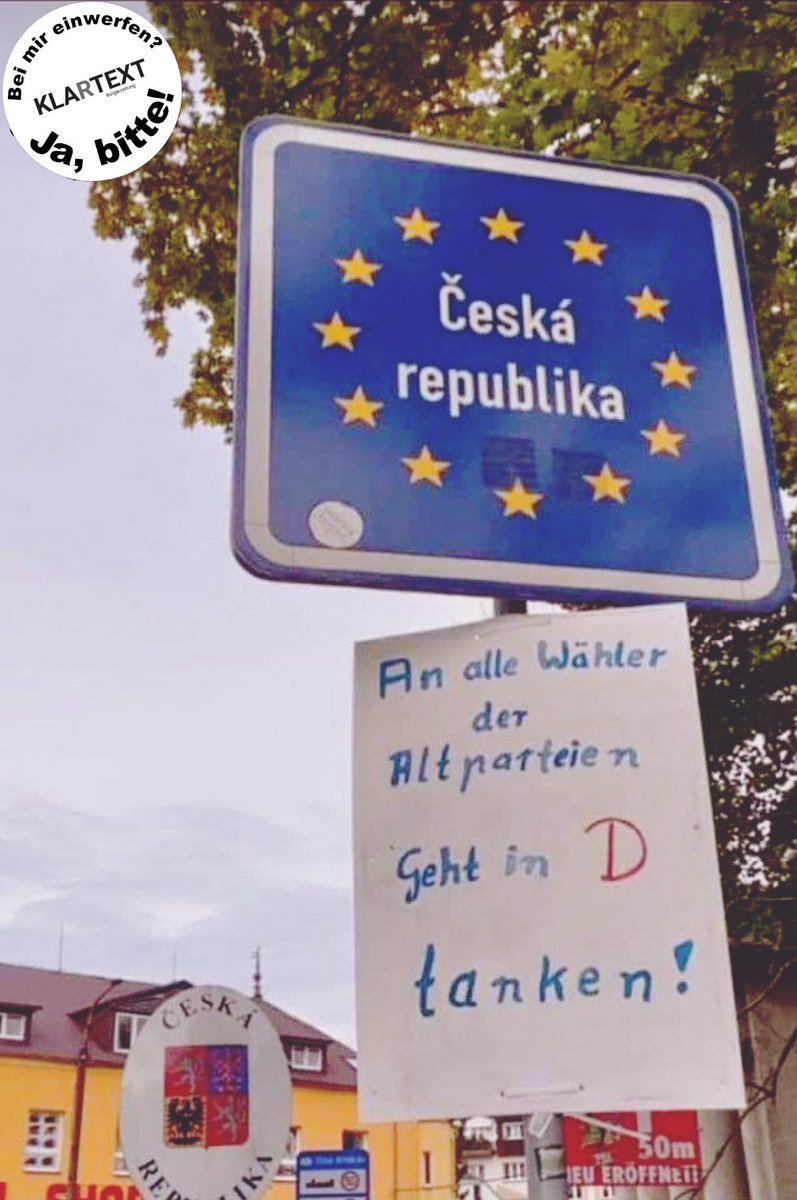 Bei mir einwerfen?
KLARTEXT
Bürgerzeitung
Ja, bitte!
Česká
republika
An alle Wähler
der
Altparteien
Geht in D
tanken!
ČESKÁ
REPUBLIKA
50m
NEU ERÖFFNET!
SHOP